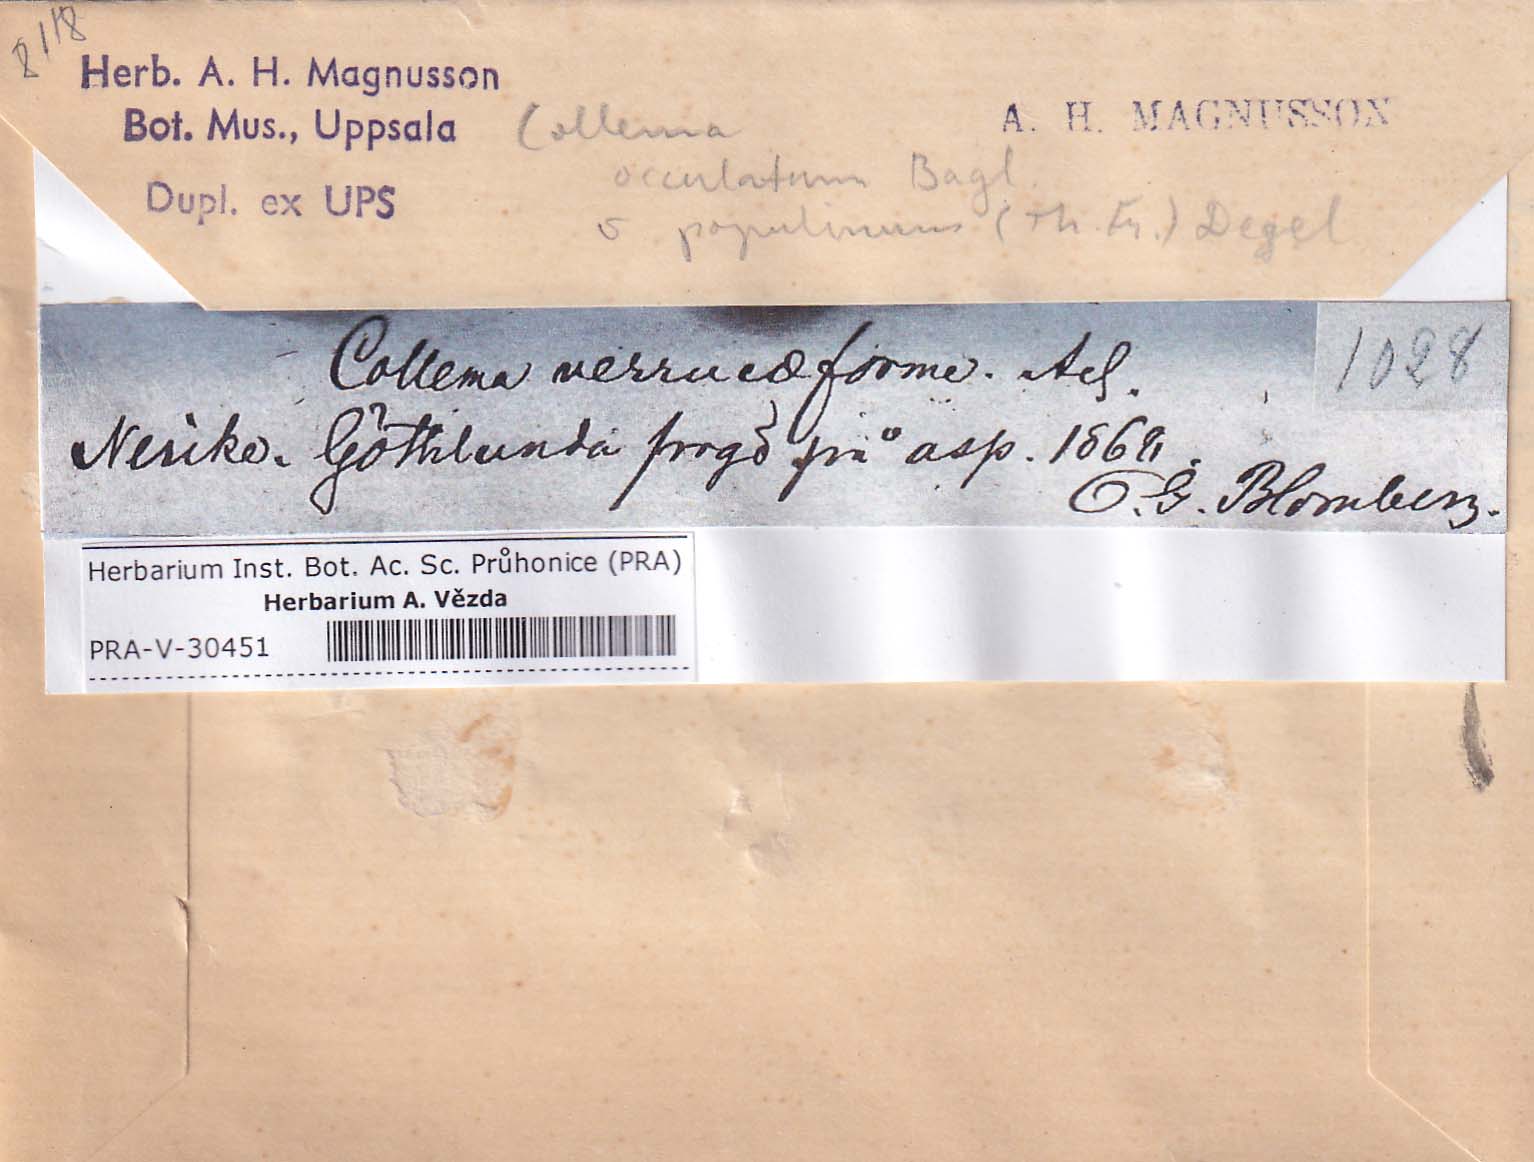 2118
Herb. A. H. Magnusson
Bot. Mus., Uppsala
Dupl. ex UPS
A. H. MAGNUSSON
Collema
occultatum Bagl.
v populinum (Th. Fr.) Degel
Collema verrucæforme. Ach.
1028
Nerike. Götlunda prgd på asp. 186
O. G. Blomberg.
Herbarium Inst. Bot. Ac. Sc. Průhonice (PRA)
Herbarium A. Vězda
PRA-V-30451